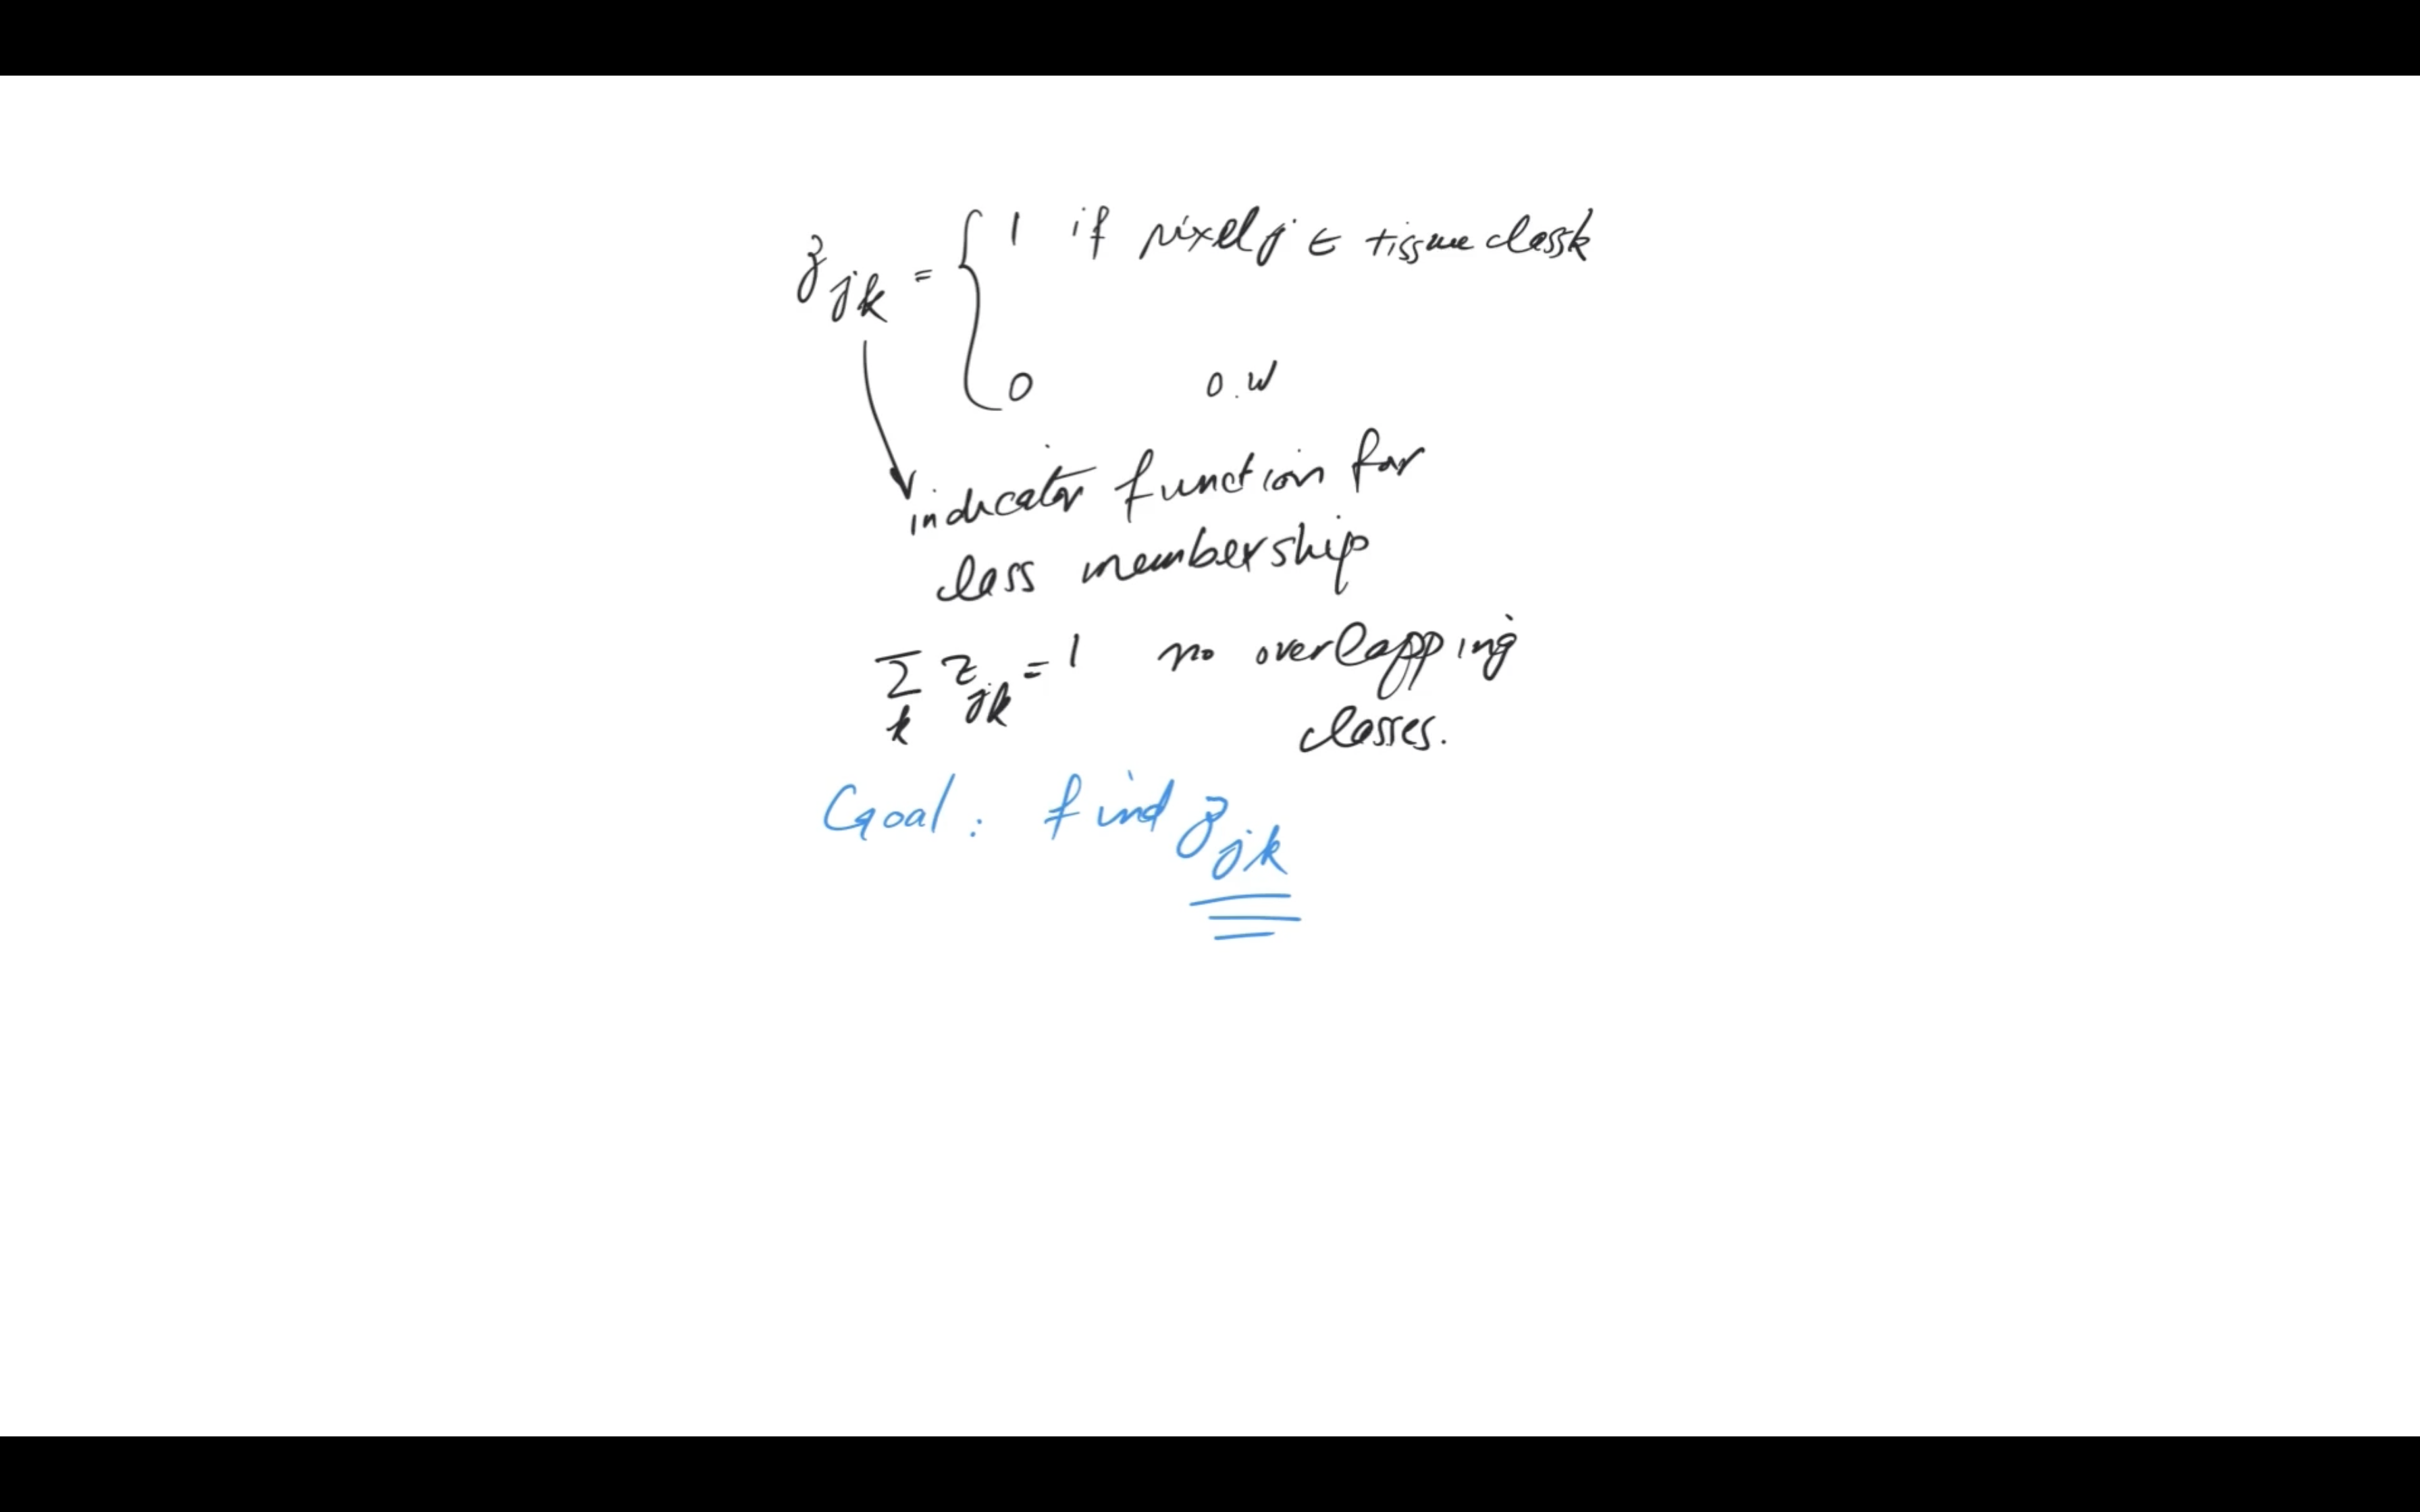 z_jk = { 1 if pixel j ∈ tissue class k
0 o.w
indicator function for
class membership
Σ_k z_jk = 1 no overlapping
classes.
Goal: find z_jk